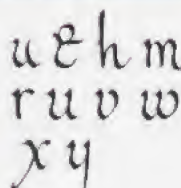 u e h m
r u v w
x y